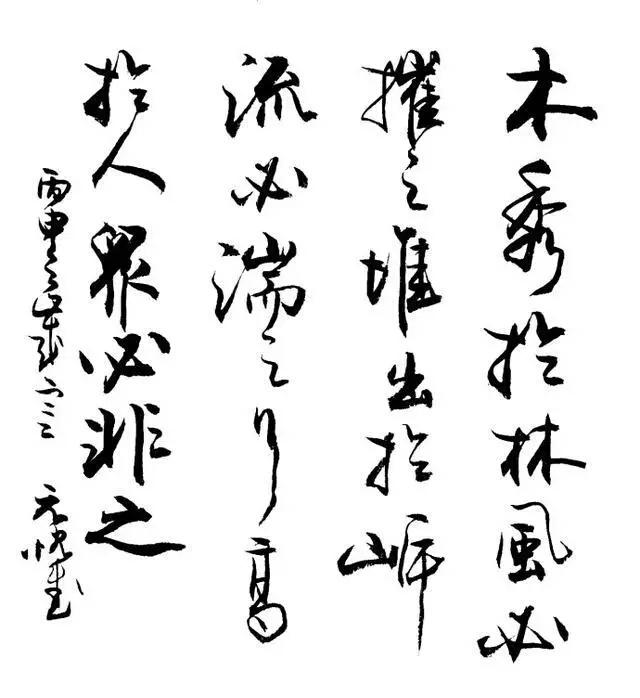 木秀於林風必
摧之堆出於岸
流必湍之行高
於人眾必非之
丙申之歲
書